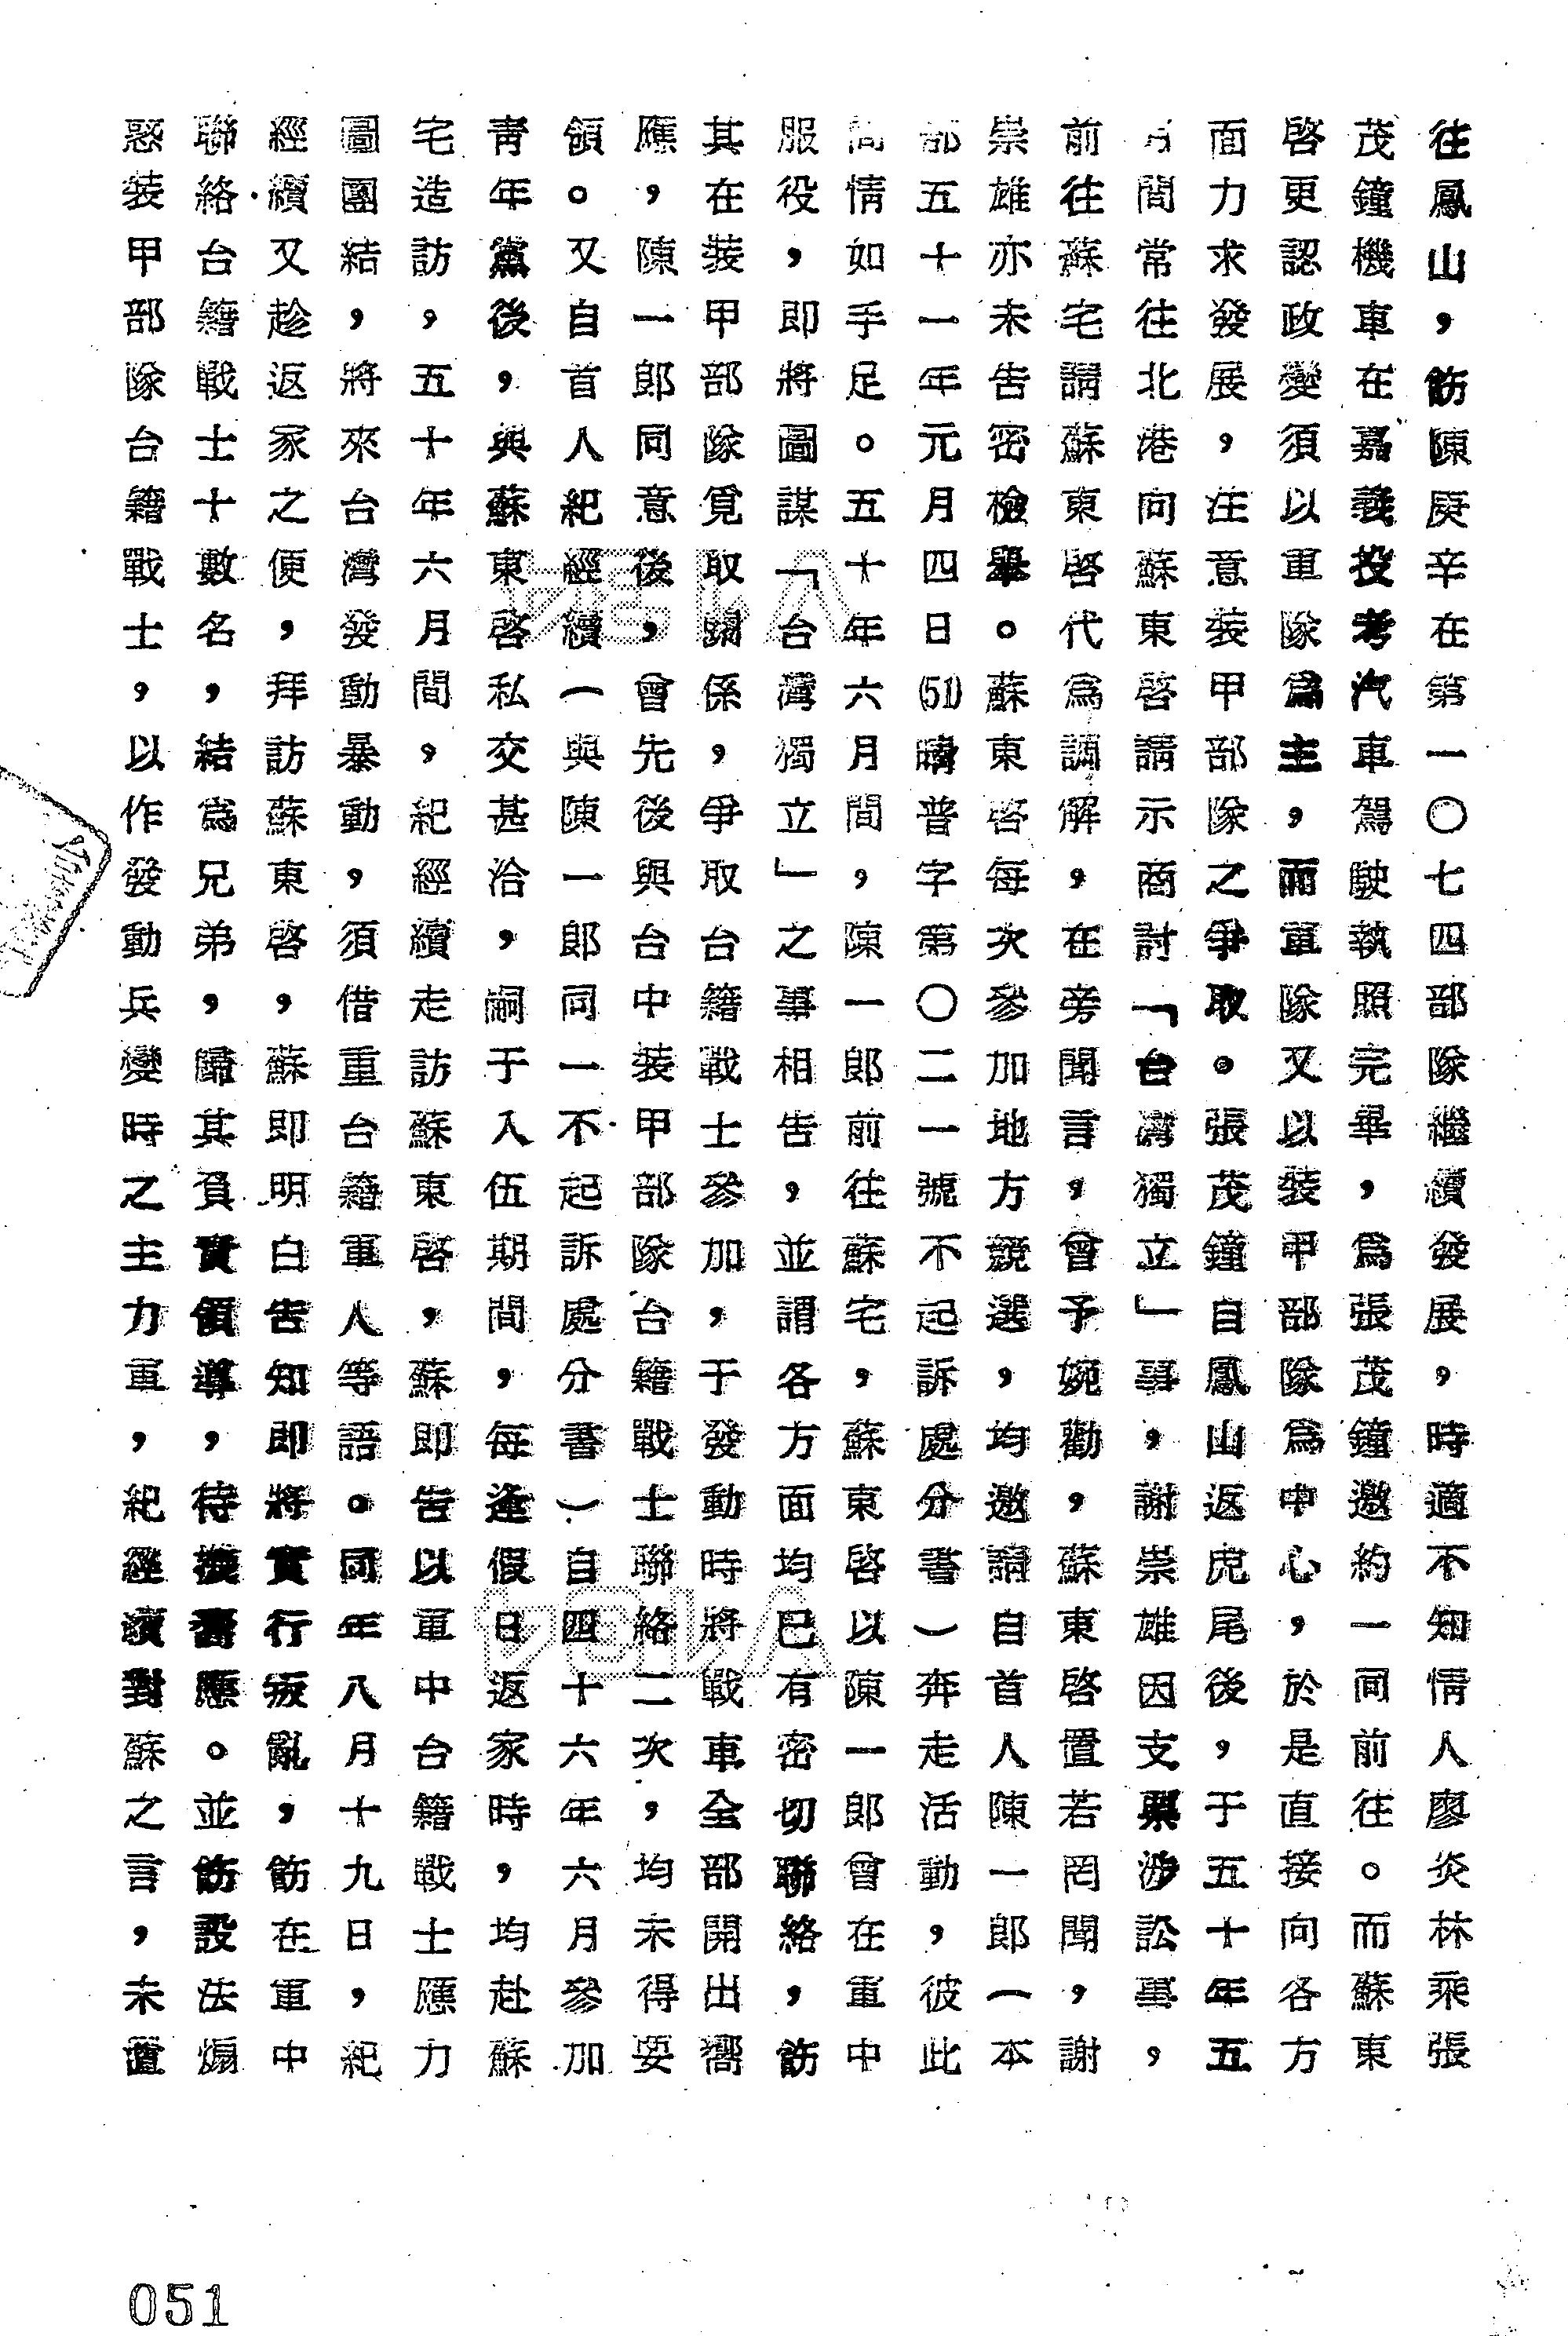 往鳳山，飭陳庚辛在第一〇七四部隊繼續發展，時適不知情人廖炎林乘張
茂鐘機車在嘉義投考汽車駕駛執照完畢，為張茂鐘邀約一同前往。而蘇東
啓更認政變須以重隊為主，而軍隊又以裝甲部隊為中心，於是直接向各方
面力求發展，注意裝甲部隊之爭取。張茂鐘自鳳山返虎尾後，于五十年五
月間常往北港向蘇東啓請示商討「台灣獨立」事，謝崇雄因支票涉訟事，
前往蘇宅請蘇東啓代為調解，在旁聞言，曾予婉勸，蘇東啓置若罔聞，謝
崇雄亦未告密檢舉。蘇東啓每次參加地方競選，均邀請自首人陳一郎（本
部五十一年元月四日(51)晴普字第〇二一號不起訴處分書）奔走活動，彼此
間情如手足。五十年六月間，陳一郎前往蘇宅，蘇東啓以陳一郎曾在軍中
服役，即將圖謀「台灣獨立」之事相告，並謂各方面均已有密切聯絡，飭
其在裝甲部隊覓取關係，爭取台籍戰士參加，于發動時將戰車全部開出嚮
應，陳一郎同意後，曾先後與台中裝甲部隊台籍戰士聯絡二次，均未得要
領。又自首人紀經續（與陳一郎同一不起訴處分書）自四十六年六月參加
青年黨後，與蘇東啓私交甚洽，嗣于入伍期間，每逢假日返家時，均赴蘇
宅造訪，五十年六月間，紀經續走訪蘇東啓，蘇即告以軍中台籍戰士應力
圖團結，將來台灣發動暴動，須借重台籍軍人等語。同年八月十九日，紀
經續又趁返家之便，拜訪蘇東啓，蘇即明白告知即將實行叛亂，飭在軍中
聯絡台籍戰士十數名，結為兄弟，歸其負責領導，待機響應。並飭設法煽
惑裝甲部隊台籍戰士，以作發動兵變時之主力軍，紀經續對蘇之言，未置
051